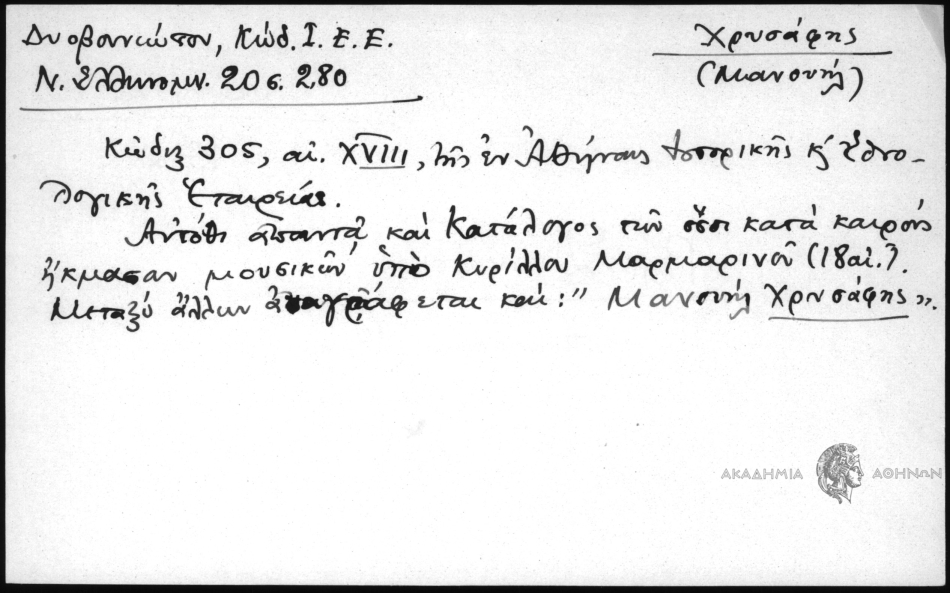 Δυοβουνιώτου, Κώδ. Ι. Ε. Ε.
Ν. Ἑλληνομν. 20 σ. 280
Χρυσάφης
(Μανουήλ)
Κώδιξ 305, αἰ. XVIII, τῆς ἐν Ἀθήναις Ἱστορικῆς κ' Ἐθνο-
λογικῆς Ἑταιρείας.
Αὐτόθι ἀπαντᾷ καὶ Κατάλογος τῶν ὅσοι κατὰ καιρούς
ἤκμασαν μουσικῶν ὑπὸ Κυρίλλου Μαρμαρινοῦ (18 αἰ.).
Μεταξὺ ἄλλων ἀναγράφεται καὶ: " Μανουὴλ Χρυσάφης".
ΑΚΑΔΗΜΙΑ ΑΘΗΝΩΝ